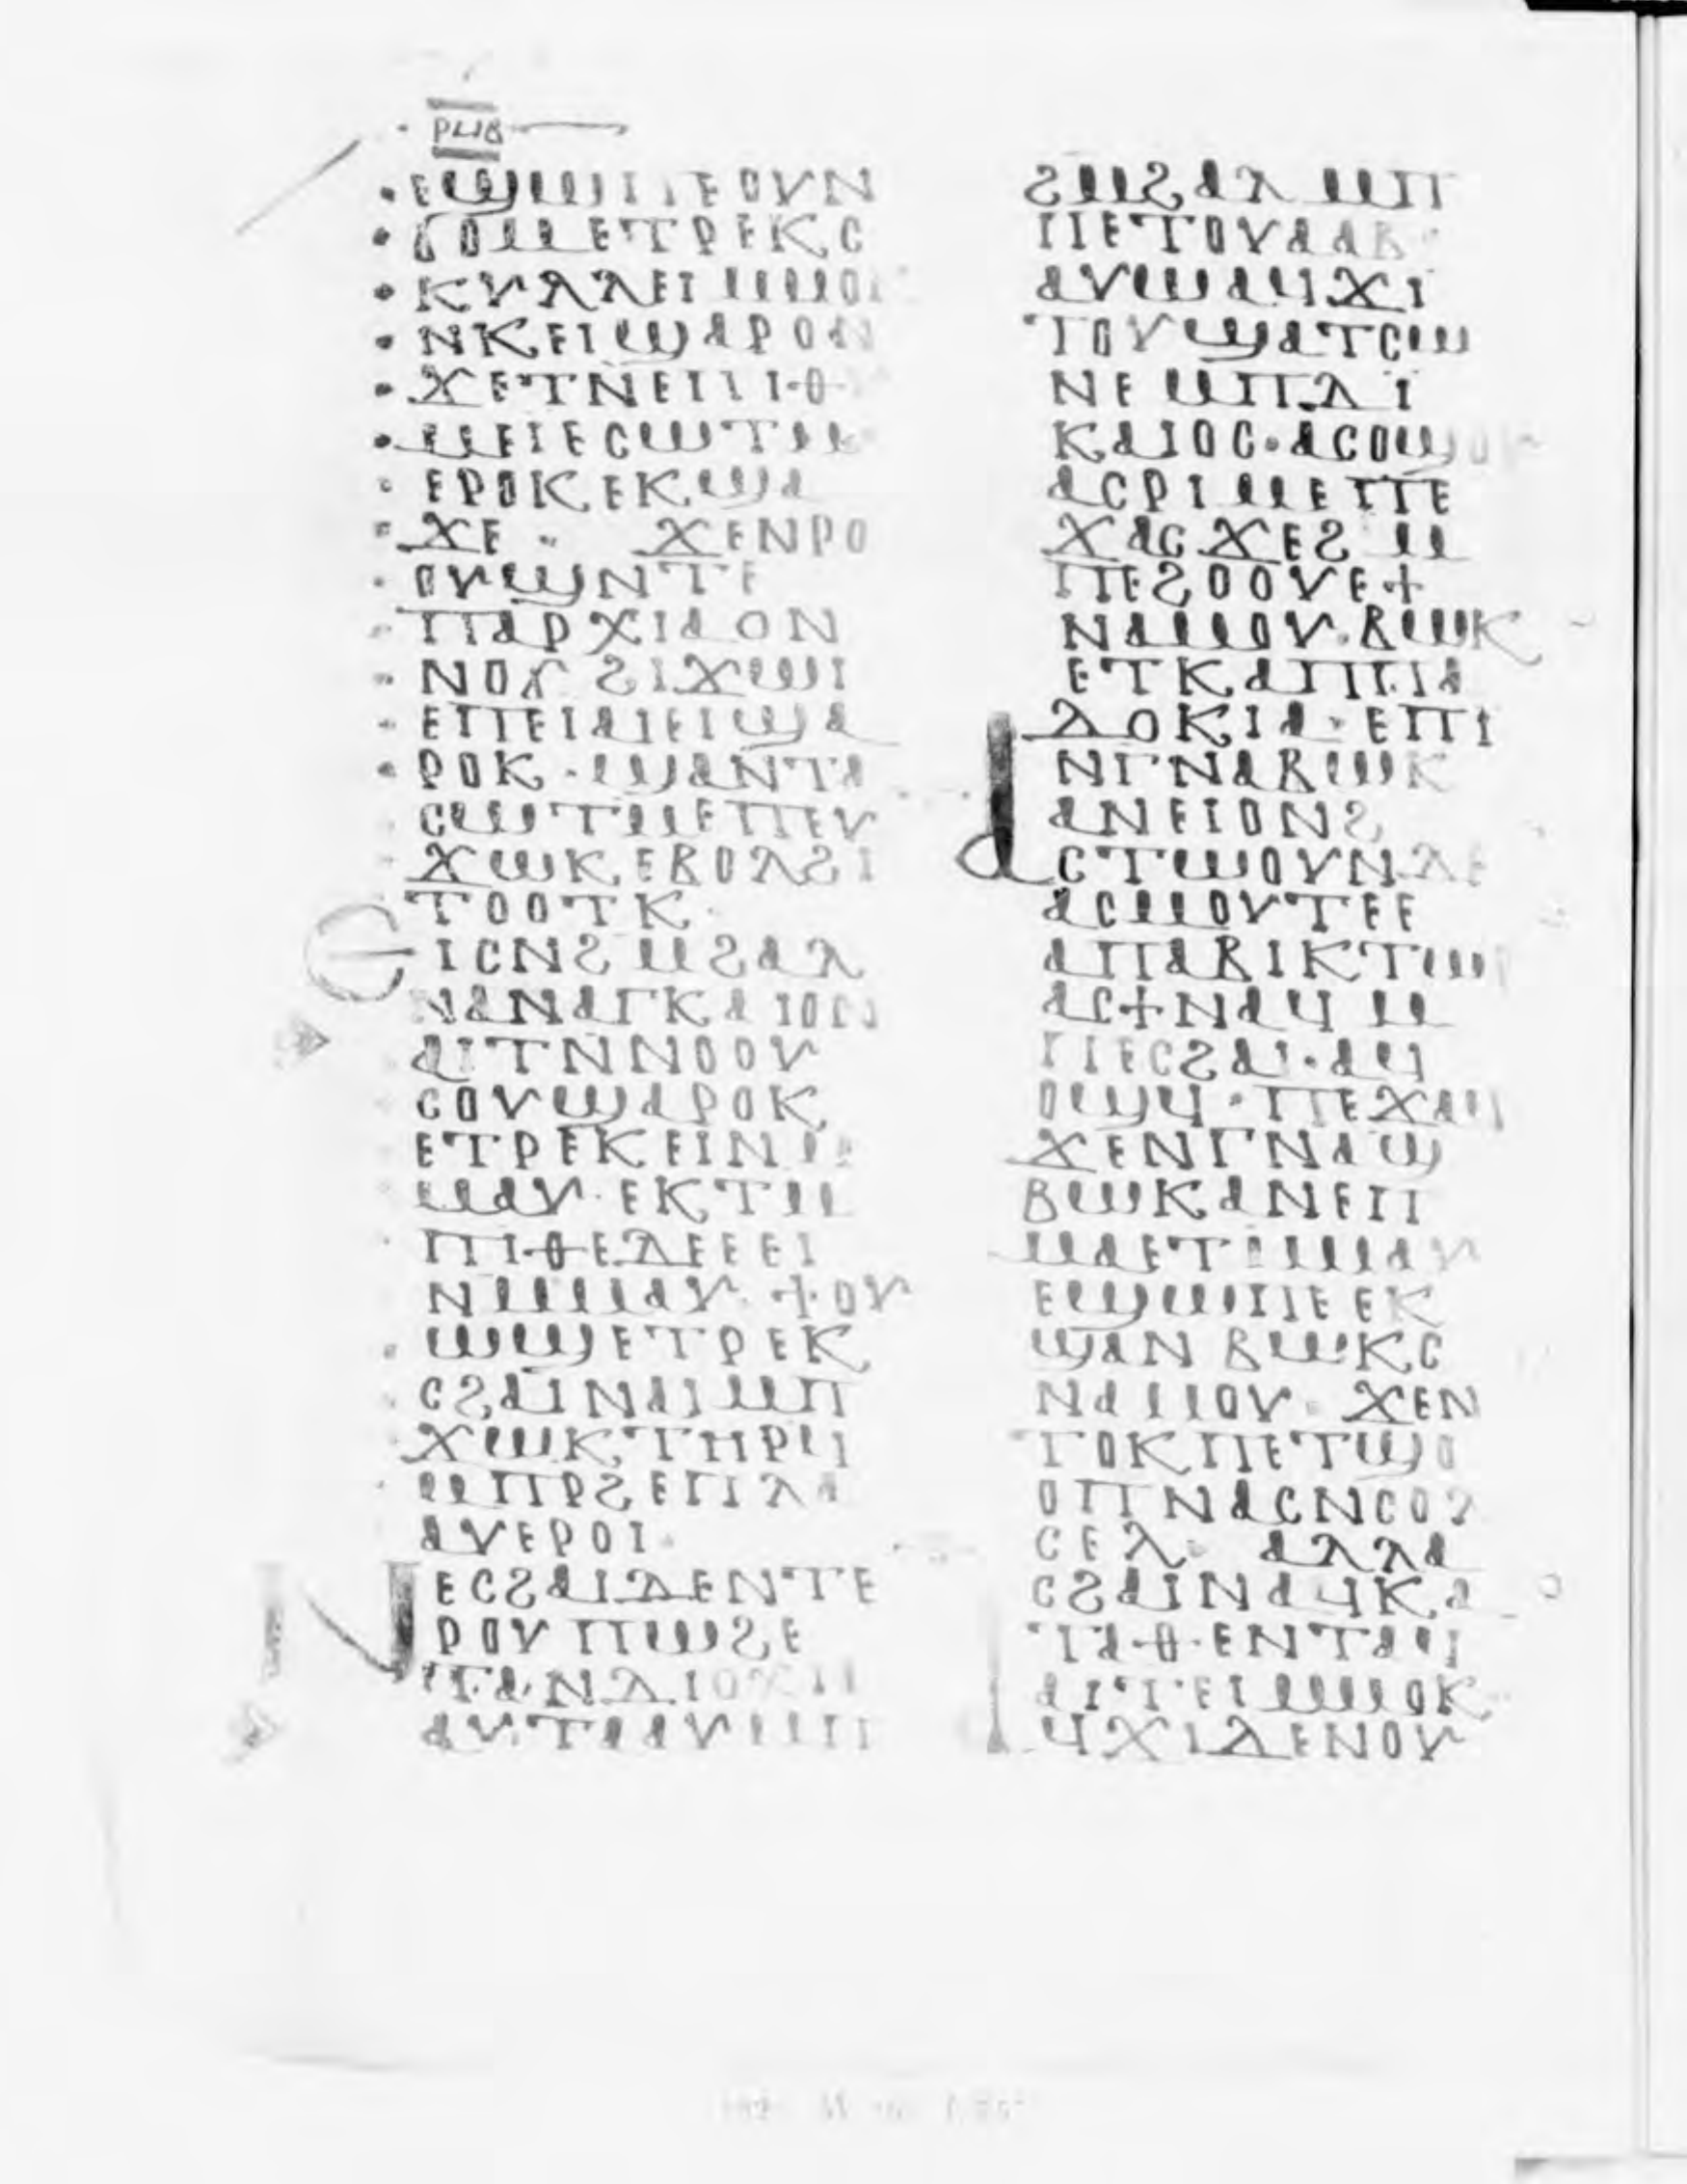 ⲣⲙⲃ
ⲉϣⲱⲡⲉⲟⲩⲛ
ϭⲟⲙⲉⲧⲣⲉⲕⲥ
ⲕⲩⲗⲗⲉⲓⲙⲙⲟ
ⲛⲕⲉⲓϣⲁⲣⲟⲛ
ϫⲉⲧⲛⲉⲡⲓⲑ
ⲙⲉⲓⲉⲥⲱⲧⲙ
ⲉⲣⲟⲕⲉⲕϣⲁ
ϫⲉ · ϫⲉⲛⲣⲟ
ⲟⲩϣⲛⲧⲉ
ⲡⲁⲣⲭⲓⲇⲟⲛ
ⲛⲟⲩϩⲓϫⲱⲓ
ⲉⲡⲉⲓⲁⲓⲉⲓϣⲁ
ⲣⲟⲕ · ϣⲁⲛⲧⲁ
ⲥⲱⲧⲙⲉⲡⲉⲩ
ϫⲱⲕⲉⲃⲟⲗϩⲓ
ⲧⲟⲟⲧⲕ ·
ⲉⲓⲥⲛϩⲙϩⲁⲗ
ⲛⲁⲛⲁⲅⲕⲁⲓⲟⲥ
ⲁⲓⲧⲛⲛⲟⲟⲩ
ⲥⲟⲩϣⲁⲣⲟⲕ
ⲉⲧⲣⲉⲕⲉⲓⲛⲙ
ⲙⲁⲩ · ⲉⲕⲧⲙ
ⲡⲓⲑⲉⲇⲉⲉⲉⲓ
ⲛⲙⲙⲁⲩ · ϯⲟⲩ
ⲱϣⲉⲧⲣⲉⲕ
ⲥϩⲁⲓⲛⲁⲓⲙⲡ
ϫⲱⲕⲧⲏⲣϥ
ⲙⲡⲣϩⲉⲡⲗⲁ
ⲁⲩⲉⲣⲟⲓ ·
ⲛⲉⲥϩⲁⲓⲇⲉⲛⲧⲉ
ⲣⲟⲩⲡⲱϩⲉ
ⲧⲁⲛⲇⲓⲟⲭⲓ
ⲁⲩⲧⲁⲁⲩⲙⲡ
ϩⲙϩⲁⲗⲙⲡ
ⲡⲉⲧⲟⲩⲁⲁⲃ ·
ⲁⲩⲱⲁϥϫⲓ
ⲧⲟⲩϣⲁⲧⲥⲱ
ⲛⲉⲙⲡⲇⲓ
ⲕⲁⲓⲟⲥ · ⲁⲥⲟϣⲟⲩ
ⲁⲥⲣⲓⲙⲉⲡⲉ
ϫⲁⲥϫⲉϩⲙ
ⲡⲉϩⲟⲟⲩⲉϯ
ⲛⲁⲙⲟⲩ · ⲃⲱⲕ
ⲉⲧⲕⲁⲡⲡⲁ
ⲇⲟⲕⲓⲁ · ⲉⲡⲓ
ⲛⲅⲛⲁⲃⲱⲕ
ⲁⲛⲉⲓⲟⲛϩ
ⲁⲥⲧⲱⲟⲩⲛⲇⲉ
ⲁⲥⲙⲟⲩⲧⲉⲉ
ⲁⲡⲁⲃⲓⲕⲧⲱ
ⲁⲥϯⲛⲁϥⲙ
ⲡⲉⲥϩⲁⲓ · ⲁϥ
ⲟϣϥ · ⲡⲉϫⲁϥ
ϫⲉⲛⲅⲛⲁϣ
ⲃⲱⲕⲁⲛⲉⲡ
ⲙⲁⲉⲧⲙⲙⲁⲩ
ⲉϣⲱⲡⲉⲉⲕ
ϣⲁⲛⲃⲱⲕⲥ
ⲛⲁⲙⲟⲩ · ϫⲉⲛ
ⲧⲟⲕⲡⲉⲧϣⲟ
ⲟⲡⲛⲁⲥⲛⲥⲟⲗ
ⲥⲉⲗ · ⲁⲗⲗⲁ
ⲥϩⲁⲓⲛⲁϥⲕⲁ
ⲧⲁⲑⲉⲛⲧⲁϥ
ⲁⲓⲧⲉⲓⲙⲙⲟⲕ
ϥϫⲓⲇⲉⲛⲟⲩ